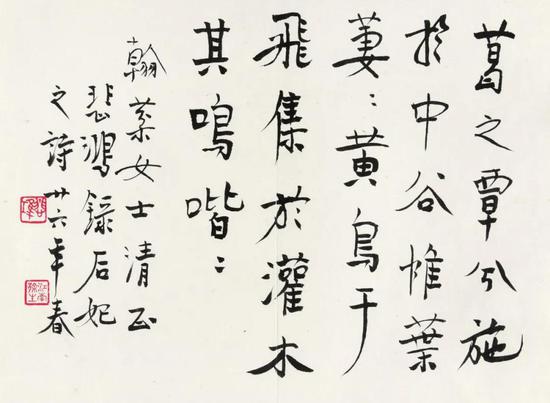 葛之覃兮施
於中谷惟葉
萋﹕黄鳥于
飛集於灌木
其鳴喈﹕
翰菜女士清正
悲鴻錄后妃
之詩 卅六年春